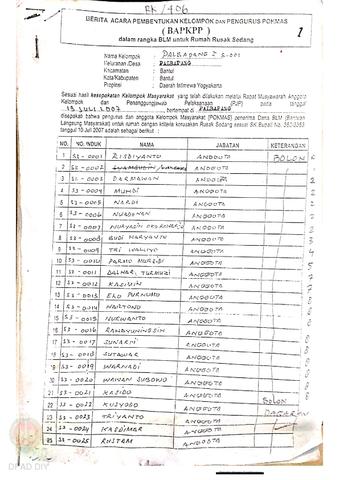 RK/406
BERITA ACARA PEMBENTUKAN KELOMPOK dan PENGURUS POKMAS
( BAPKPP )
dalam rangka BLM untuk Rumah Rusak Sedang
1
Nama Kelompok : PALBAPANG I S-001
Kelurahan /Desa PALBAPANG
Kecamatan : Bantul
Kab/Kota : Bantul
Propinsi : Daerah Istimewa Yogyakarta
Sesuai hasil kesepakatan Kelompok Masyarakat yang telah dilakukan melalui Rapat Musyawarah Anggota
Kelompok dan Penanggungjawab Pelaksanaan (PJP) pada tanggal
13 JULI 2007 bertempat di PALBAPANG
disepakati bahwa pengurus dan anggota Kelompok Masyarakat [POKMAS] penerima Dana BLM (Bantuan
Langsung Masyarakat) untuk rumah dengan kriteria kerusakan Rusak Sedang sesuai SK Bupati No.
tanggal 10 Juli 2007 adalah sebagai berikut :
NO. NO. INDUK NAMA JABATAN KETERANGAN
1 S3-0001 RISDIYANTO ANGGOTA BOLON
2 S3-0002 ANGGOTA
3 S3-0003 DARMAWAN ANGGOTA
4 S3-0004 MUHDI ANGGOTA
5 S3-0005 NARDI ANGGOTA
6 S3-0006 ANGGOTA
7 S3-0007 NURYADIN ANGGOTA
8 S3-0008 BUDI HARYANTO ANGGOTA
9 S3-0009 TRI WALUYO ANGGOTA
10 S3-0010 ANGGOTA
11 S3-0011 ANGGOTA
12 S3-0012 ANGGOTA
13 S3-0013 EKO PURNOMO ANGGOTA
14 S3-0014 ANGGOTA
15 S3-0015 NURWANTO ANGGOTA
16 S3-0016 ANGGOTA
17 S3-0017 SUNARNI ANGGOTA
18 S3-0018 SUTAWAR ANGGOTA
19 S3-0019 WARNADI ANGGOTA
20 S3-0020 WAWAN SUBOWO ANGGOTA
21 S3-0021 KASIDO ANGGOTA
22 S3-0022 KUSYODO ANGGOTA BOLON
23 S3-0023 TRIYANTO ANGGOTA DAGARAN
24 S3-0024 KASDIMAR ANGGOTA
25 S3-0025 RUSTAM ANGGOTA
DPAD DIY